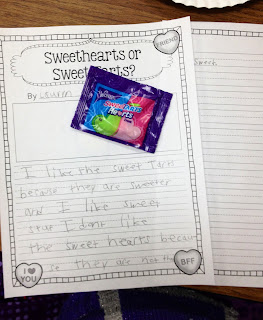 FRIEND
Sweethearts or
Sweet Hearts?
By
Hearts
I like the sweet Tarts
because they are sweeter
and I like sweet
stuf I don't like
the sweet hearts becau
se they are not tha
I ♥ YOU
BFF